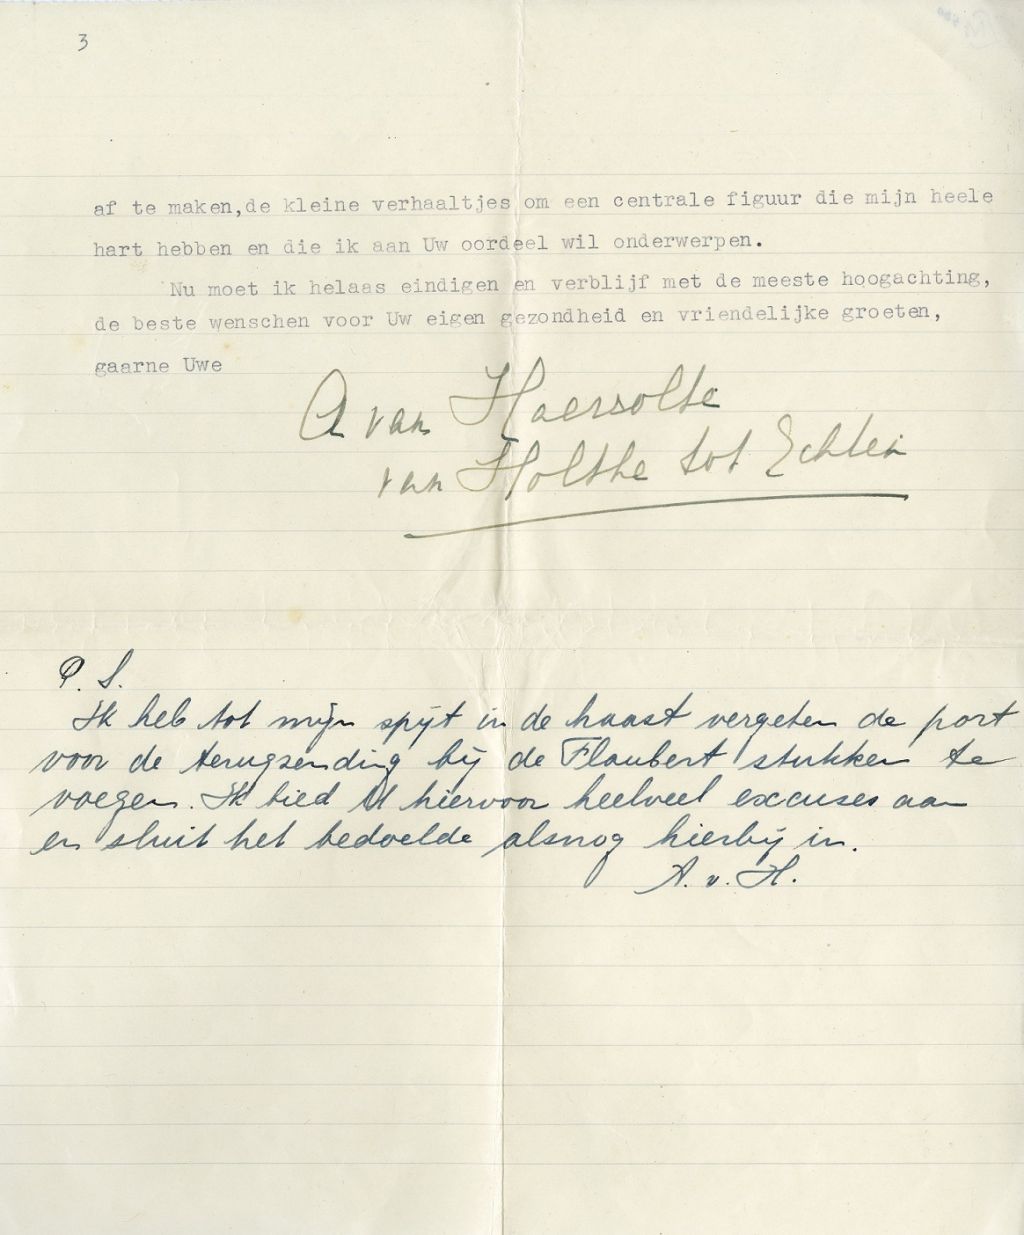 3
af te maken,de kleine verhaaltjes om een centrale figuur die mijn heele
hart hebben en die ik aan Uw oordeel wil onderwerpen.
Nu moet ik helaas eindigen en verblijf met de meeste hoogachting,
de beste wenschen voor Uw eigen gezondheid en vriendelijke groeten,
gaarne Uwe
A van Haersolte
van Holthe tot Echten
P.S.
Ik heb tot mijn spijt in de haast vergeten de port
voor de terugzending bij de Flaubert stukken te
voegen. Ik bied U hiervoor heelveel excuses aan
en sluit het bedoelde alsnog hierbij in.
A. v. H.